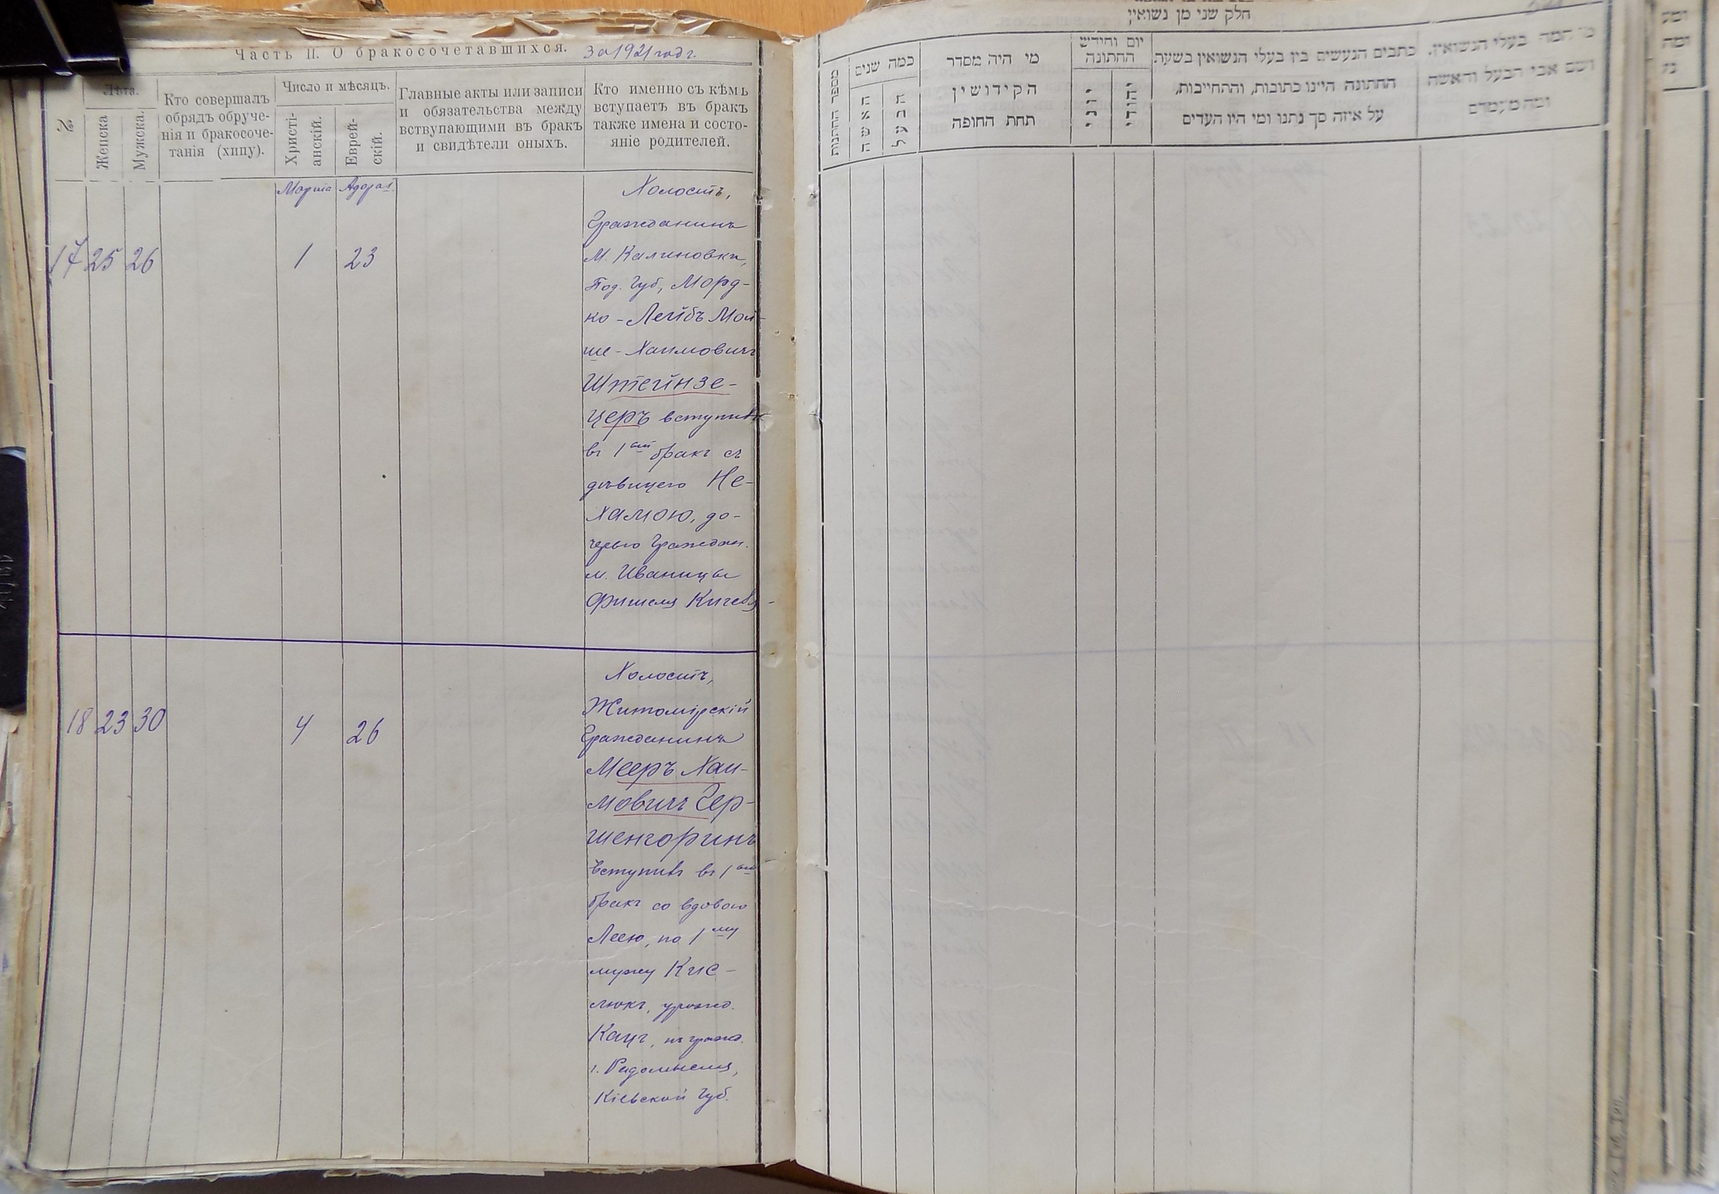 Часть II. О бракосочетавшихся. За 1921 годг.
№
Лѣта.
Женска
Мужска.
Кто совершалъ
обрядъ обруче-
нія и бракосоче-
танія (хипу).
Число и мѣсяцъ.
Христі-
анскій.
Еврей-
скій.
Главные акты или записи
и обязательства между
вступающими въ бракъ
и свидѣтели оныхъ.
Кто именно съ кѣмъ
вступаетъ въ бракъ
также имена и состо-
яніе родителей.
Марта Адора I
17 25 26 1 23
Холостъ,
Гражданинъ
М. Калиновки,
Под. Губ, Морд-
ко - Лейбъ Мой-
ше - Хаимовичъ
Штейнзе-
церъ вступилъ
въ 1ый бракъ съ
дѣвицею Не-
хамою, до-
черью Граждан.
м. Иваницы
Фишеля
18 23 30 4 26
Холостъ,
Житомірскій
Гражданинъ
Мееръ Хаи-
мовичъ Гер-
шенгоринъ
вступилъ въ 1ый
бракъ со вдовою
Леею, по 1му
мужу Кис-
люкъ, урожд.
Кацъ,
г. Радомысля,
Кіевской Губ.
חלק שני מן נשואין
מספר החתונות
כמה שנים
האשה
הבעל
מי היה מסדר
הקידושין
תחת החופה
יום וחידש
החתונה
יוני
יהודי
כתבים הנעשים בין בעלי הנשואין בשעת
החתונה היינו כתובות, והתחייבות,
על איזה סך נתנו ומי היו העדים
מי המה בעלי הנשואין.
ושם אבי הבעל והאשה
ומה מעמדם